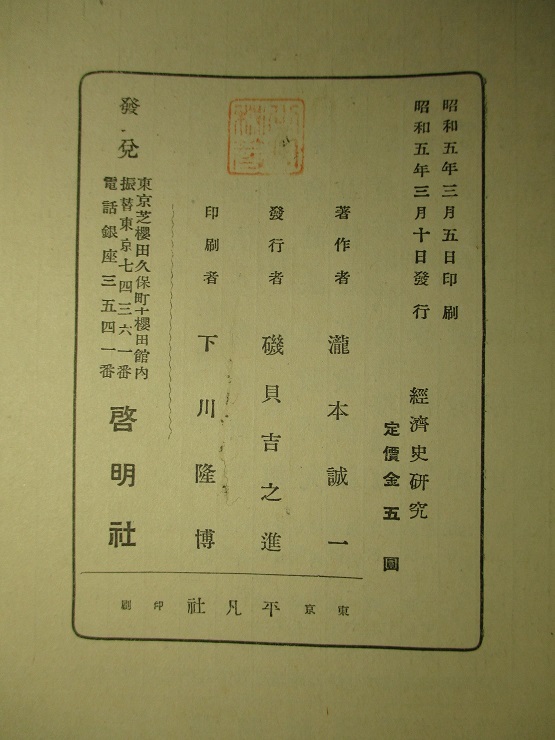 昭和五年三月五日印刷
昭和五年三月十日發行
經濟史研究
定價金五圓
著作者 瀧本誠一
發行者 磯貝吉之進
印刷者 下川隆博
發兌
東京芝櫻田久保町十櫻田館内
振替東京七四三六一番
電話銀座三五四一番
啓明社
東京 平凡社 印刷